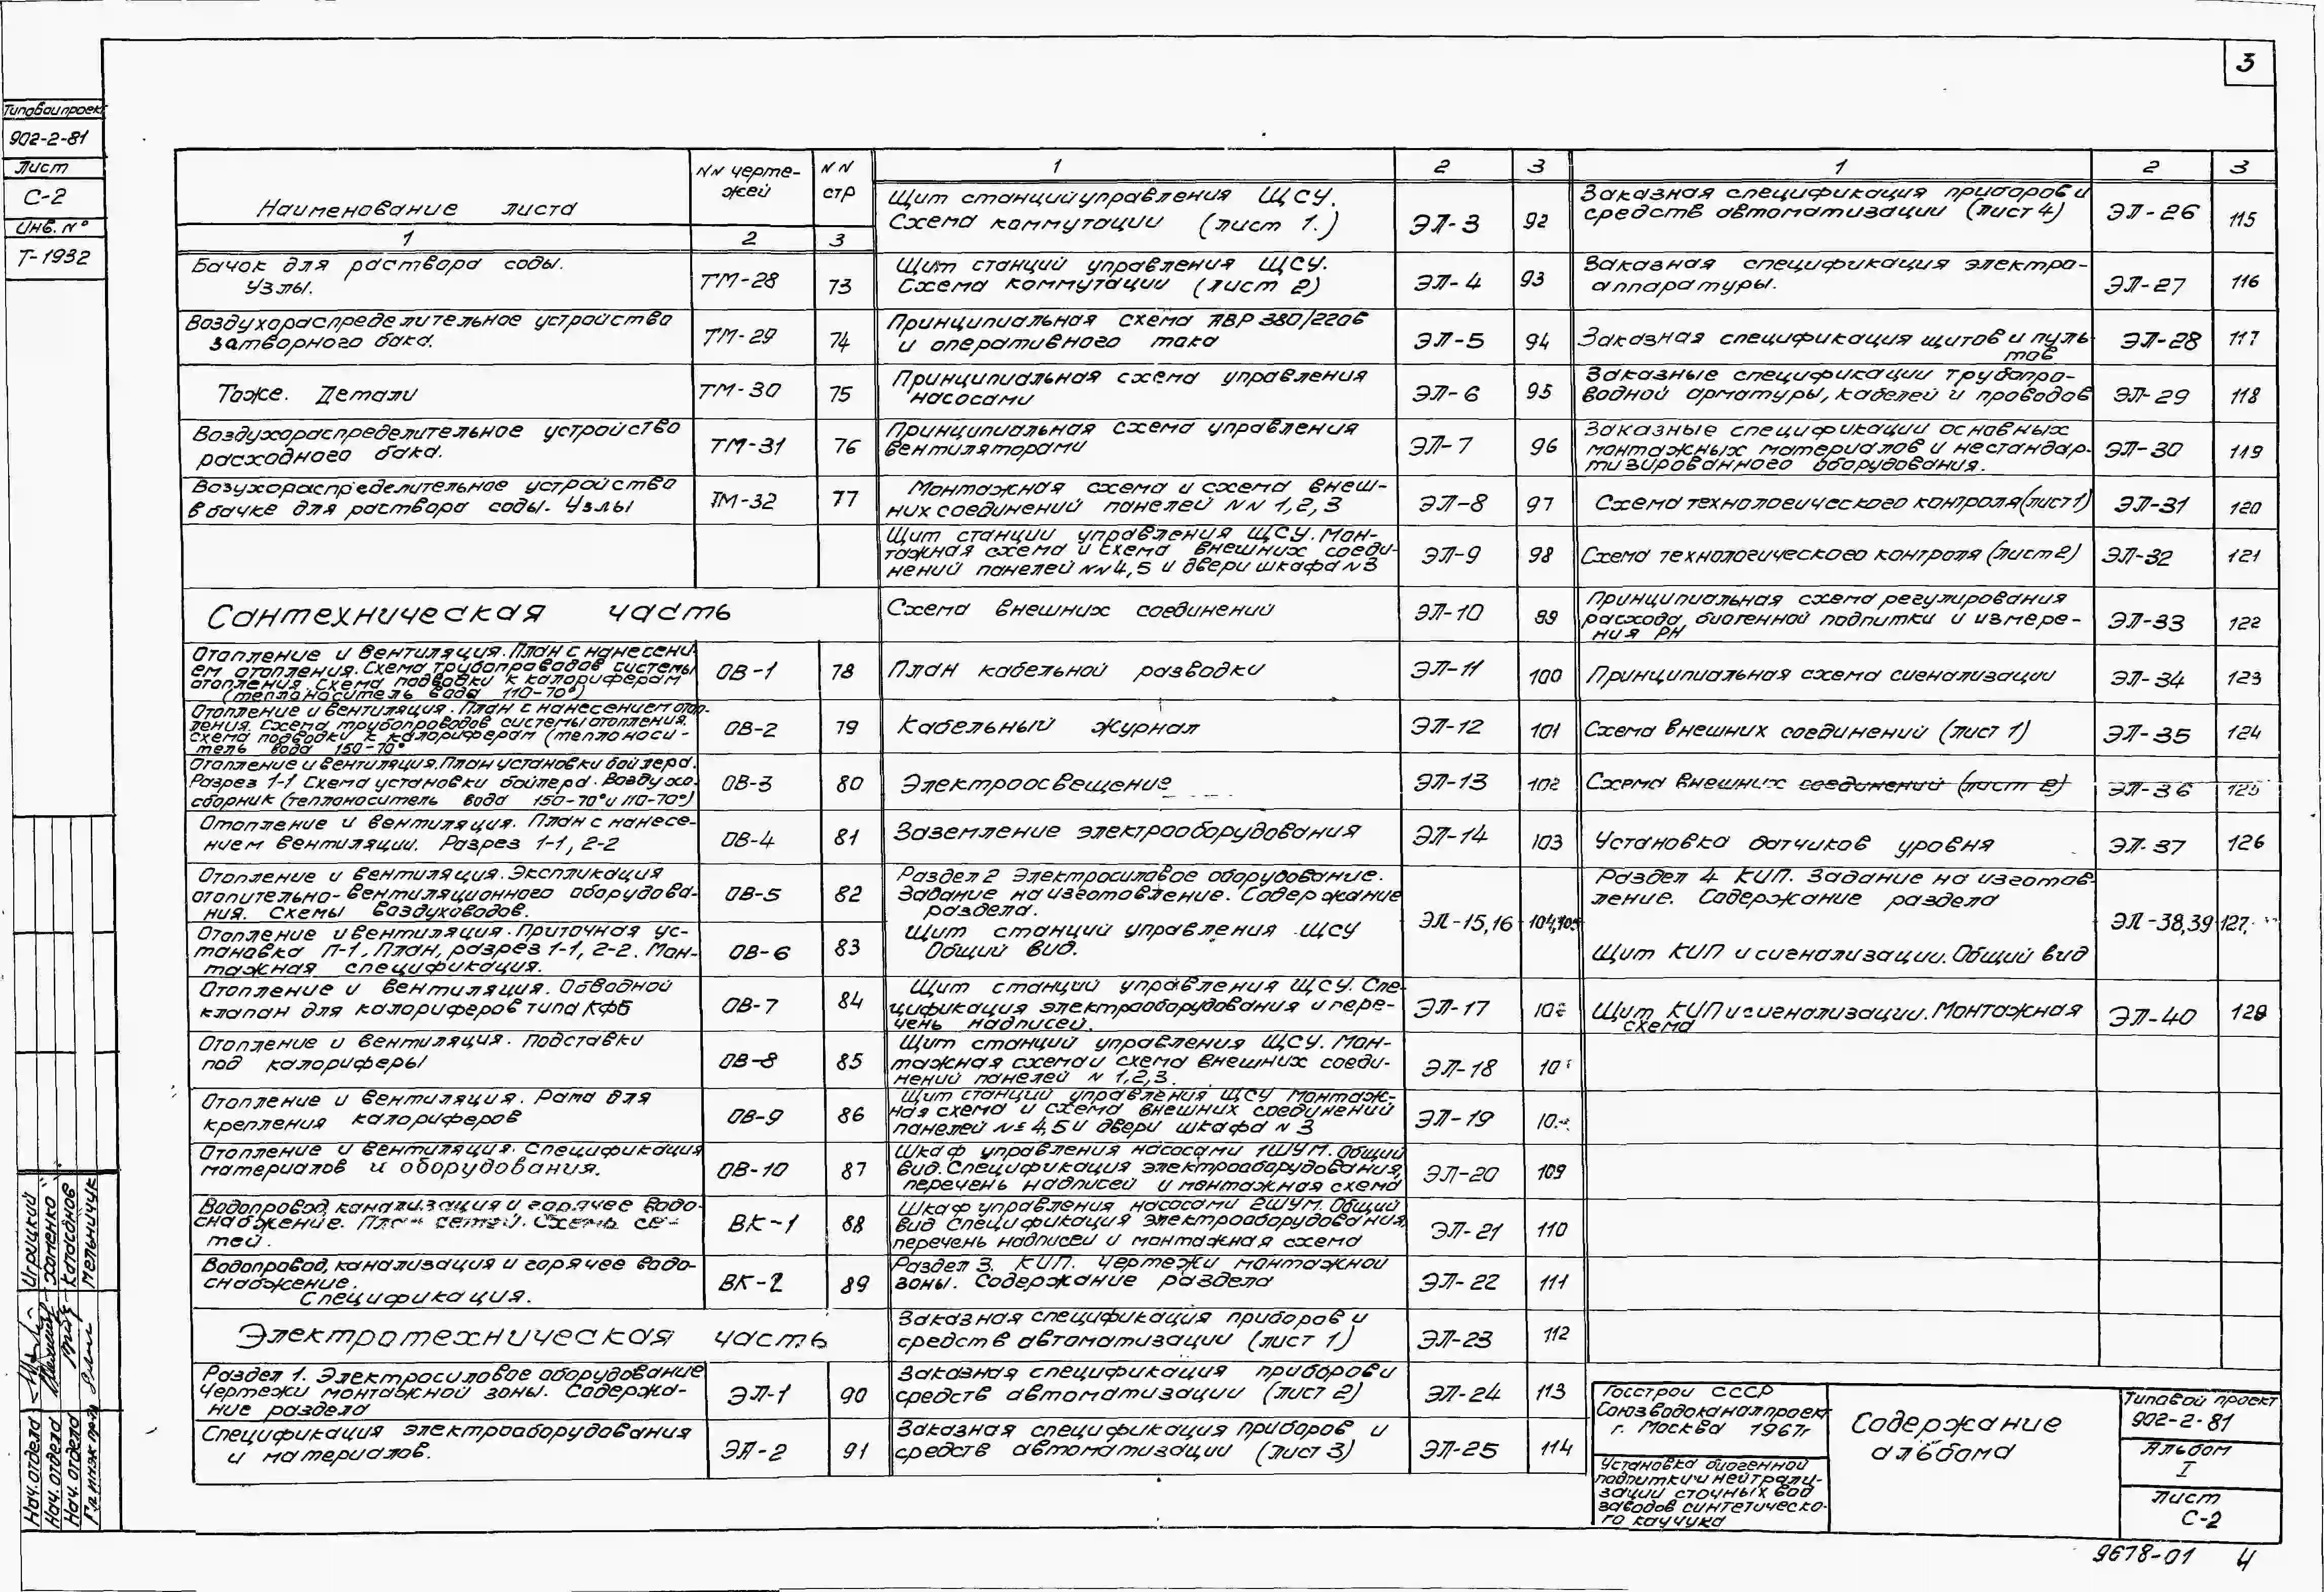 3
Типовой проект
902-2-81
Лист
С-2
Инв. №
Т-1932
Наименование листа
NN чертежей
NN стр
1
2
3
Бачок для раствора соды.
Узлы.
ТМ-28
73
Воздухораспределительное устройство
затворного бака.
ТМ-29
74
Тоже. Детали
ТМ-30
75
Воздухораспределительное устройство
расходного бака.
ТМ-31
76
Возухораспределительное устройство
в бачке для раствора соды. Узлы
ТМ-32
77
Сантехническая часть
Отопление и вентиляция. План с нанесени-
ем отопления. Схема трубопроводов системы
отопления. Схема подводки к калориферам
(теплоноситель вода 110-70°)
ОВ-1
78
Отопление и вентиляция. План с нанесением отоп-
ления. Схема трубопроводов системы отопления.
Схема подводки к калориферам (теплоноси-
тель вода 150-70°
ОВ-2
79
Отопление и вентиляция. План установки бойлера.
Разрез 1-1 Схема установки бойлера. Воздухо-
сборник (теплоноситель вода 150-70° и 110-70°)
ОВ-3
80
Отопление и вентиляция. План с нанесе-
нием вентиляции. Разрез 1-1, 2-2
ОВ-4
81
Отопление и вентиляция. Экспликация
отопительно-вентиляционного оборудова-
ния. Схемы воздуховодов.
ОВ-5
82
Отопление и вентиляция. Приточная ус-
тановка П-1. План, разрез 1-1, 2-2. Мон-
тажная спецификация.
ОВ-6
83
Отопление и вентиляция. Обводной
клапан для калориферов типа КФБ
ОВ-7
84
Отопление и вентиляция. Подставки
под калориферы
ОВ-8
85
Отопление и вентиляция. Рама для
крепления калориферов
ОВ-9
86
Отопление и вентиляция. Спецификация
материалов и оборудования.
ОВ-10
87
Водопровод, канализация и горячее водо-
снабжение. План сетей. Схема се-
тей.
ВК-1
88
Водопровод, канализация и горячее водо-
снабжение.
Спецификация.
ВК-2
89
Электротехническая часть
Раздел 1. Электросиловое оборудование
Чертежи монтажной зоны. Содержа-
ние раздела
ЭЛ-1
90
Спецификация электрооборудования
и материалов.
ЭЛ-2
91
1
2
3
Щит станций управления ЩСУ.
Схема коммутации (лист 1.)
ЭЛ-3
92
Щит станций управления ЩСУ.
Схема коммутации (лист 2)
ЭЛ-4
93
Принципиальная схема АВР 380/220в
и оперативного тока
ЭЛ-5
94
Принципиальная схема управления
насосами
ЭЛ-6
95
Принципиальная схема управления
вентиляторами
ЭЛ-7
96
Монтажная схема и схема внеш-
них соединений панелей NN 1,2,3
ЭЛ-8
97
Щит станции управления ЩСУ. Мон-
тажная схема и схема внешних соеди-
нений панелей NN 4,5 и двери шкафа N3
ЭЛ-9
98
Схема внешних соединений
ЭЛ-10
99
План кабельной разводки
ЭЛ-11
100
Кабельный журнал
ЭЛ-12
101
Электроосвещение
ЭЛ-13
102
Заземление электрооборудования
ЭЛ-14
103
Раздел 2 Электросиловое оборудование.
Задание на изготовление. Содержание
раздела.
Щит станций управления ЩСУ
Общий вид.
ЭЛ-15,16
104,105
Щит станций управления ЩСУ. Спе-
цификация электрооборудования и пере-
чень надписей.
ЭЛ-17
Щит станций управления ЩСУ. Мон-
тажная схема и схема внешних соеди-
нений панелей N 1,2,3.
ЭЛ-18
Щит станций управления ЩСУ Монтаж-
ная схема и схема внешних соединений
панелей №№ 4,5 и двери шкафа N 3
ЭЛ-19
Шкаф управления насосами 1ШУМ. Общий
вид. Спецификация электрооборудования,
перечень надписей и монтажная схема
ЭЛ-20
109
Шкаф управления насосами 2ШУМ. Общий
вид Спецификация электрооборудования,
перечень надписей и монтажная схема
ЭЛ-21
110
Раздел 3. КИП. Чертежи монтажной
зоны. Содержание раздела
ЭЛ-22
111
Заказная спецификация приборов и
средств автоматизации (лист 1)
ЭЛ-23
112
Заказная спецификация приборов и
средств автоматизации (лист 2)
ЭЛ-24
113
Заказная спецификация приборов и
средств автоматизации (лист 3)
ЭЛ-25
114
1
2
3
Заказная спецификация приборов и
средств автоматизации (лист 4)
ЭЛ-26
115
Заказная спецификация электро-
аппаратуры.
ЭЛ-27
116
Заказная спецификация щитов и пуль-
тов
ЭЛ-28
117
Заказные спецификации трубопро-
водной арматуры, кабелей и проводов
ЭЛ-29
118
Заказные спецификации основных
монтажных материалов и нестандар-
тизированного оборудования.
ЭЛ-30
119
Схема технологического контроля (лист 1)
ЭЛ-31
120
Схема технологического контроля (лист 2)
ЭЛ-32
121
Принципиальная схема регулирования
расхода биогенной подпитки и измере-
ния РН
ЭЛ-33
122
Принципиальная схема сигнализации
ЭЛ-34
123
Схема внешних соединений (лист 1)
ЭЛ-35
124
Схема внешних соединений (лист 2)
ЭЛ-36
125
Установка датчиков уровня
ЭЛ-37
126
Раздел 4 КИП. Задание на изготов-
ление. Содержание раздела
Щит КИП и сигнализации. Общий вид
ЭЛ-38,39
127,
Щит КИП и сигнализации. Монтажная
схема
ЭЛ-40
129
Госстрой СССР
Союзводоканалпроект
г. Москва 1967г
Установка биогенной
подпитки и нейтрали-
зации сточных вод
заводов синтетическо-
го каучука
Содержание
альбома
Типовой проект
902-2-81
Альбом
I
Лист
С-2
9678-01 4
Нач. отдела Игрицкий
Нач. отдела Хоменко
Нач. отдела Колосанов
Гл. инж. пр-та Мельничук